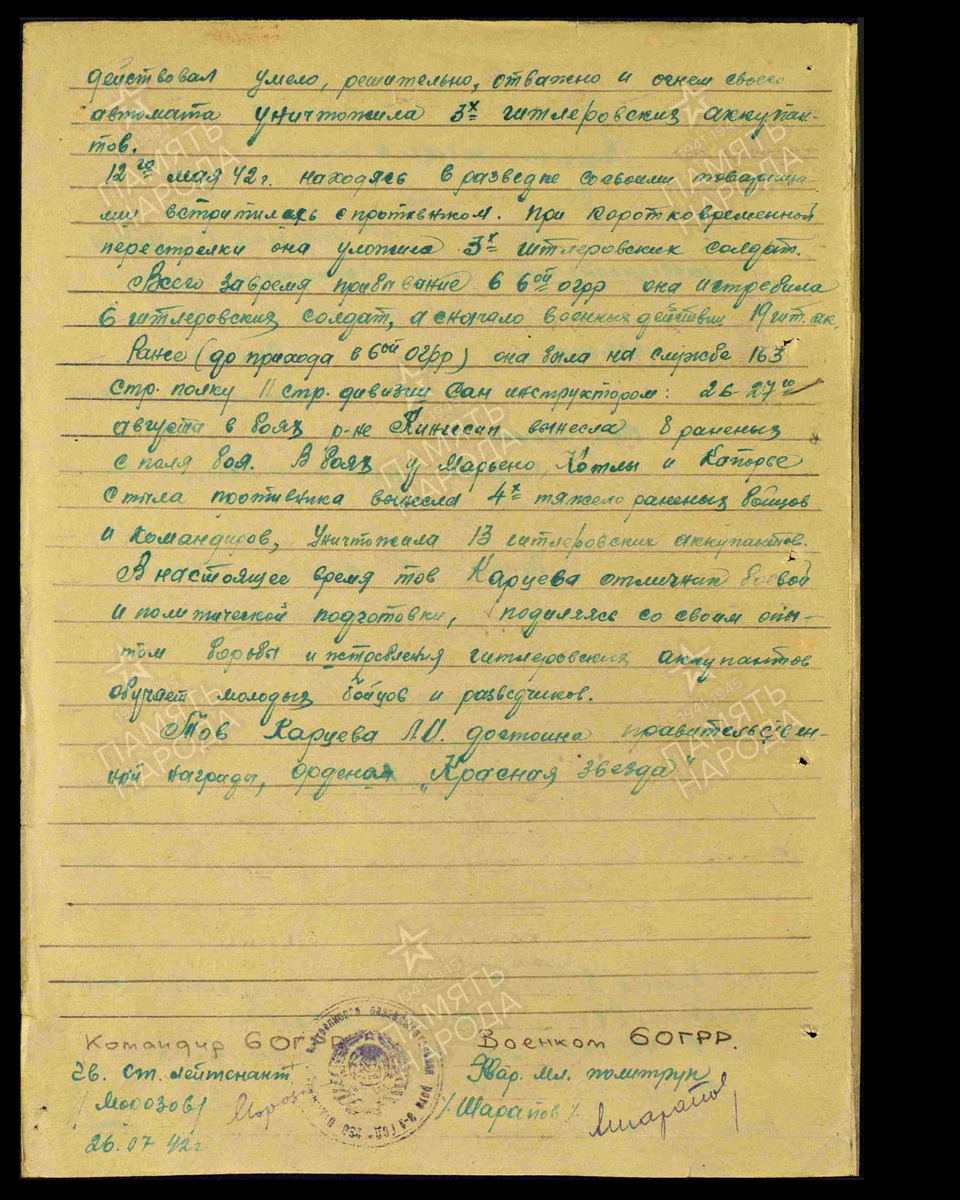 действовал умело, решительно, отважно и огнем своего
автомата уничтожила 3х гитлеровских аккупан-
тов.
12го мая 42г. находясь в разведке со своими товарища
ми встритилась с противником. При коротковременной
перестрелки она уложила 3х гитлеровских солдат.
Всего за время прибывание в 6ой огрр она истребила
6 гитлеровских солдат, а сначало военных действии 19 гит. ак.
Ранее (до прихода в 6ой огрр) она была на службе 163
стр. полку 11 стр. дивизии Сан инструктором: 26-27го
августа в боях р-не Кингисеп вынесла 8 раненых
с поля боя. В боях у Марьено, Котлы и Капорье
с тыла противника вынесла 4х тяжело раненых бойцов
и командиров, уничтожила 13 гитлеровских аккупантов.
В настоящее время тов Карцева отличник боевой
и политической подготовки, подиляясь со своим опы-
том борьбы и истребления гитлеровских аккупантов
обучает молодых бойцов и разведчиков.
Тов Карцева Л.И. достоина правительствен-
ной награды, орденом „Красная звезда"
Командир 6ОГРР Военком 6ОГРР.
Гв. Ст. лейтенант Гвар. Мл. политрук
/Морозов/ Морозов /Шарапов/. Шарапов
26.07 42г
ПАМЯТЬ
НАРОДА
1941-1945